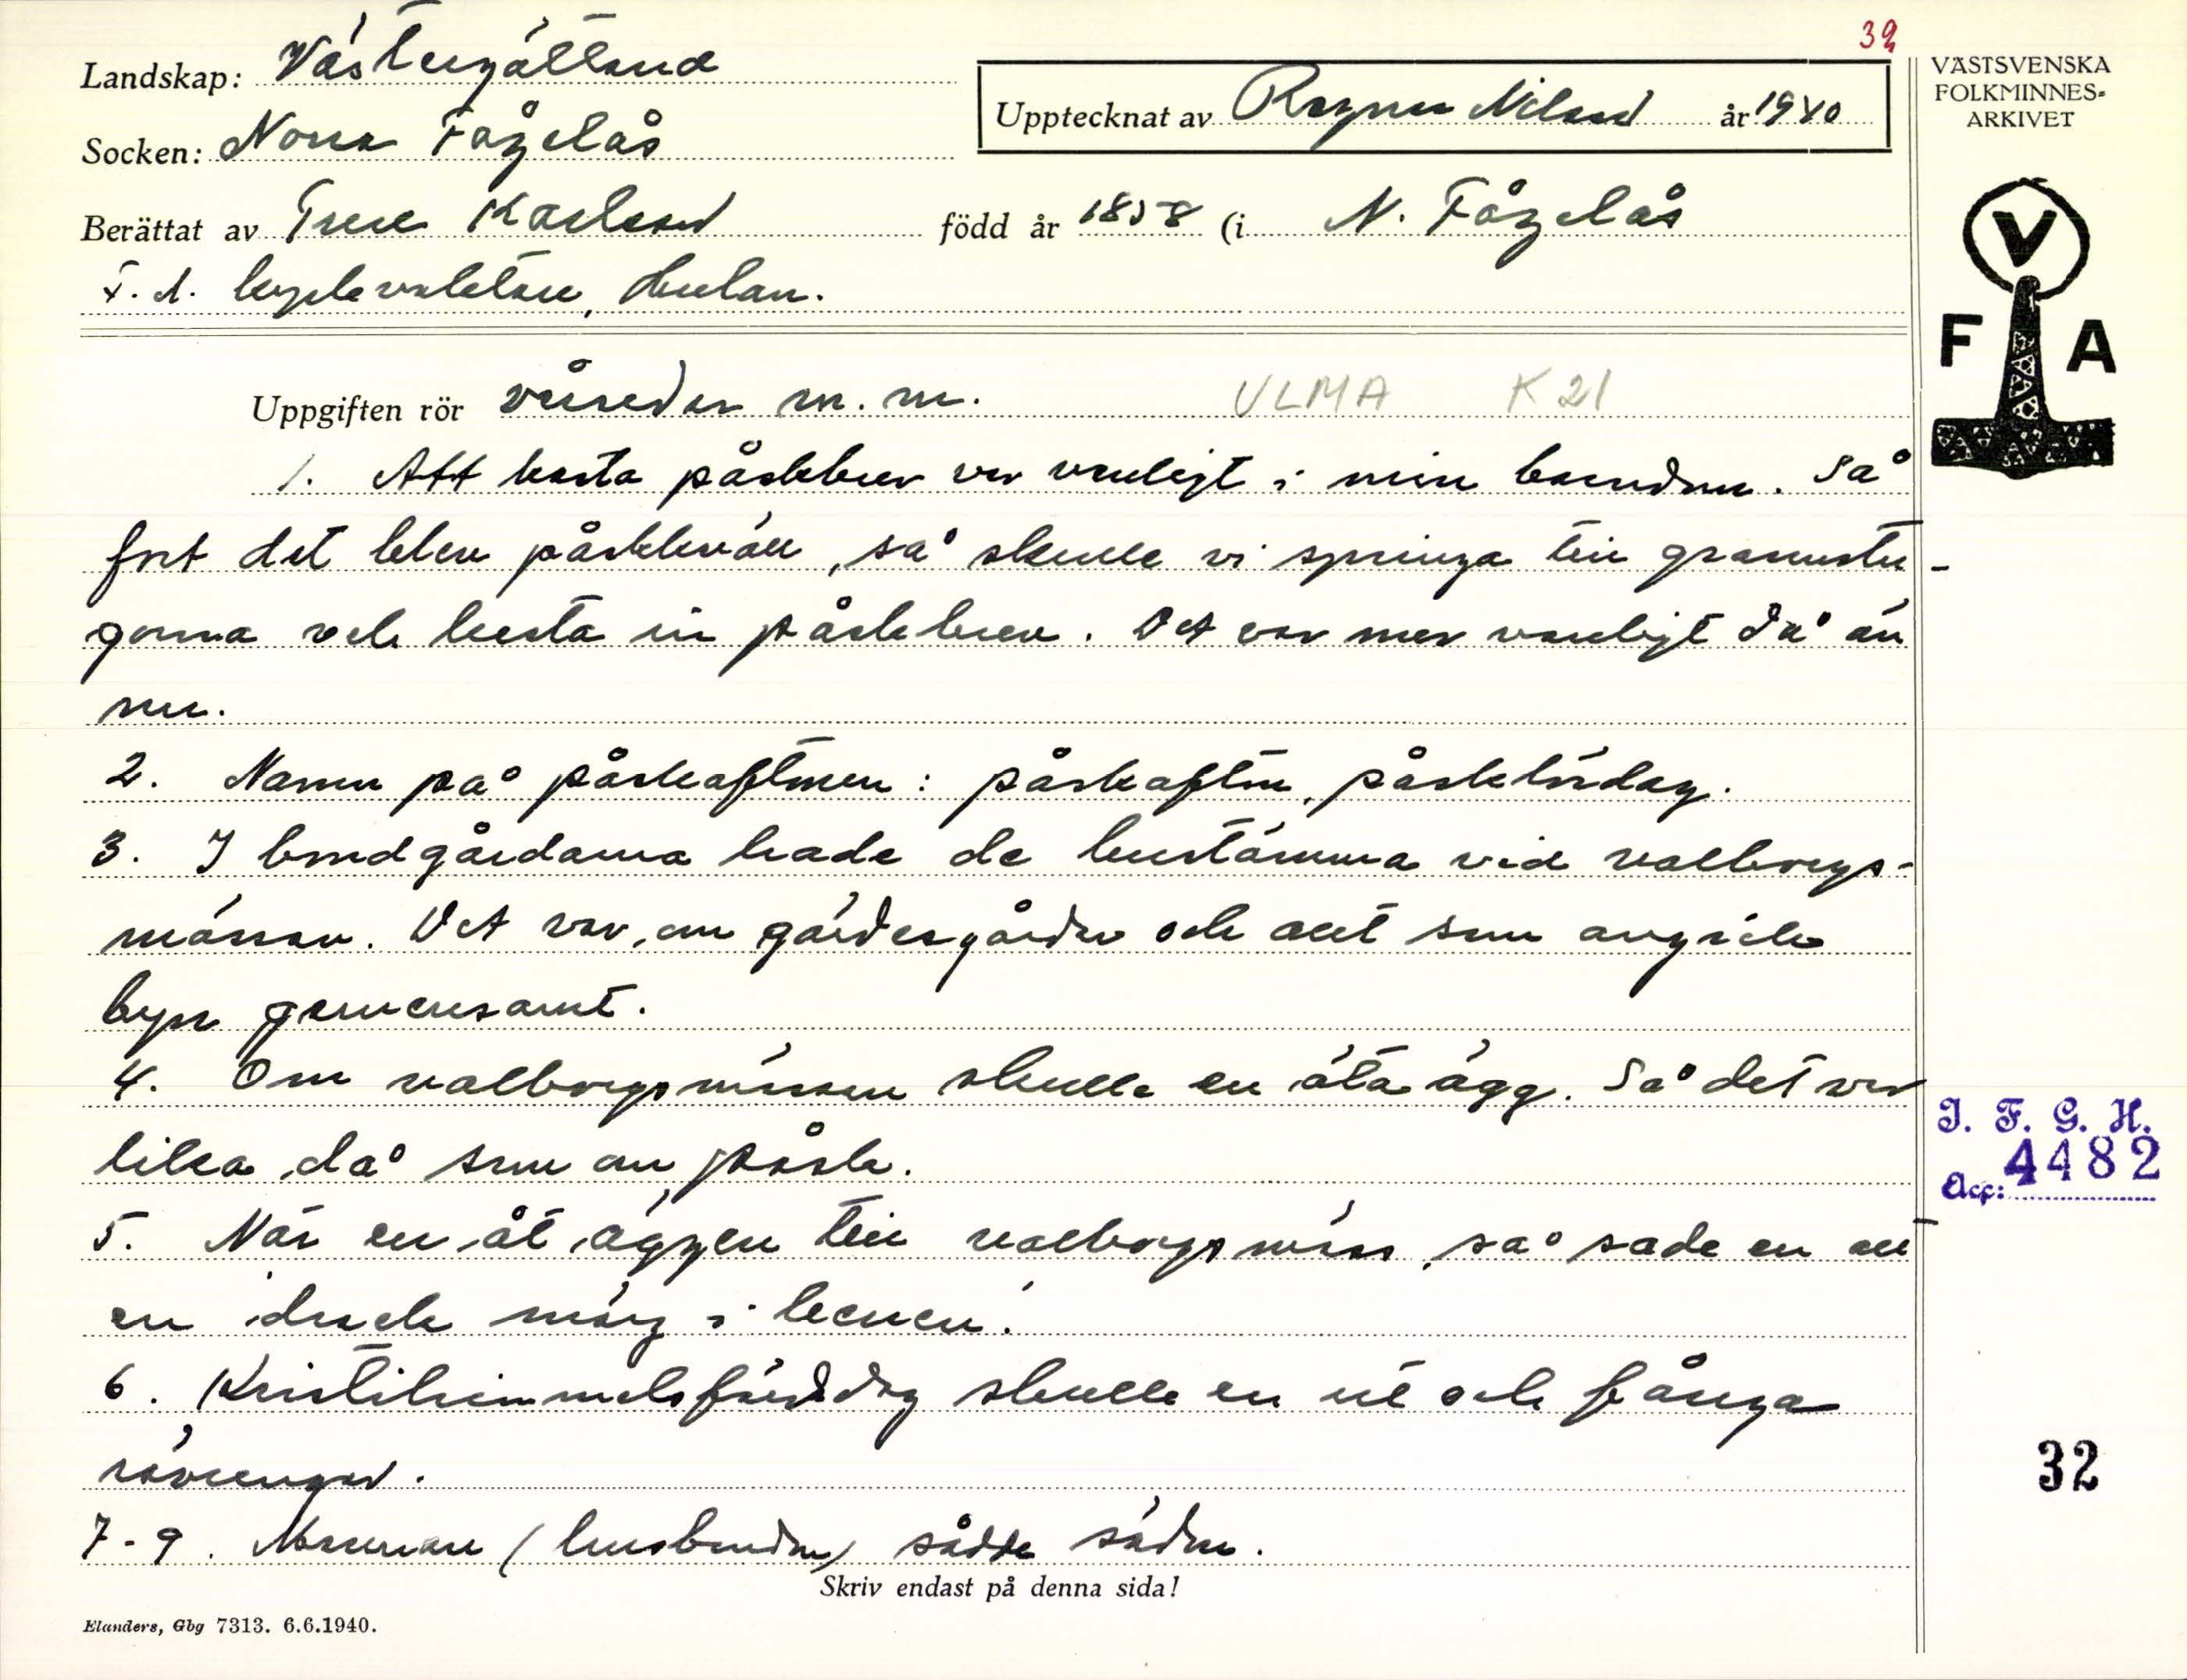 32
Landskap: Västergötland
Upptecknat av Ragnar Nilsson år 1940
VÄSTSVENSKA
FOLKMINNES-
ARKIVET
Socken: Norra Fågelås
Berättat av Ture Karlsson född år 1858 (i N. Fågelås
F. d. Huslan.
V
F A
Uppgiften rör årseder m. m. ULMA K 21
1. Att kasta påskbrev var vanligt i min barndom. Så
fort det blev påskkväll, så skulle vi springa till grannstu-
gorna och kasta in påskbrev. Det var mer vanligt då än
nu.
2. Namn på påskaftonen: påskafton, påsklördag.
3. I bondgårdarna hade de bystämma vid valborgs-
mässan. Det var om gärdesgårdar och allt som angick
byn gemensamt.
4. Om valborgsmässan skulle en äta ägg. Så det var
lika då som om påsk.
I. F. G. H.
Acc: 4482
5. När en åt äggen till valborgsmäss, så sade en att
en drack märg i benen.
6. Kristihimmelsfärdsdag skulle en ut och fånga
rävungar.
32
7-9. (husbonden) sådde säden.
Skriv endast på denna sida!
Elanders, Gbg 7313. 6.6.1940.